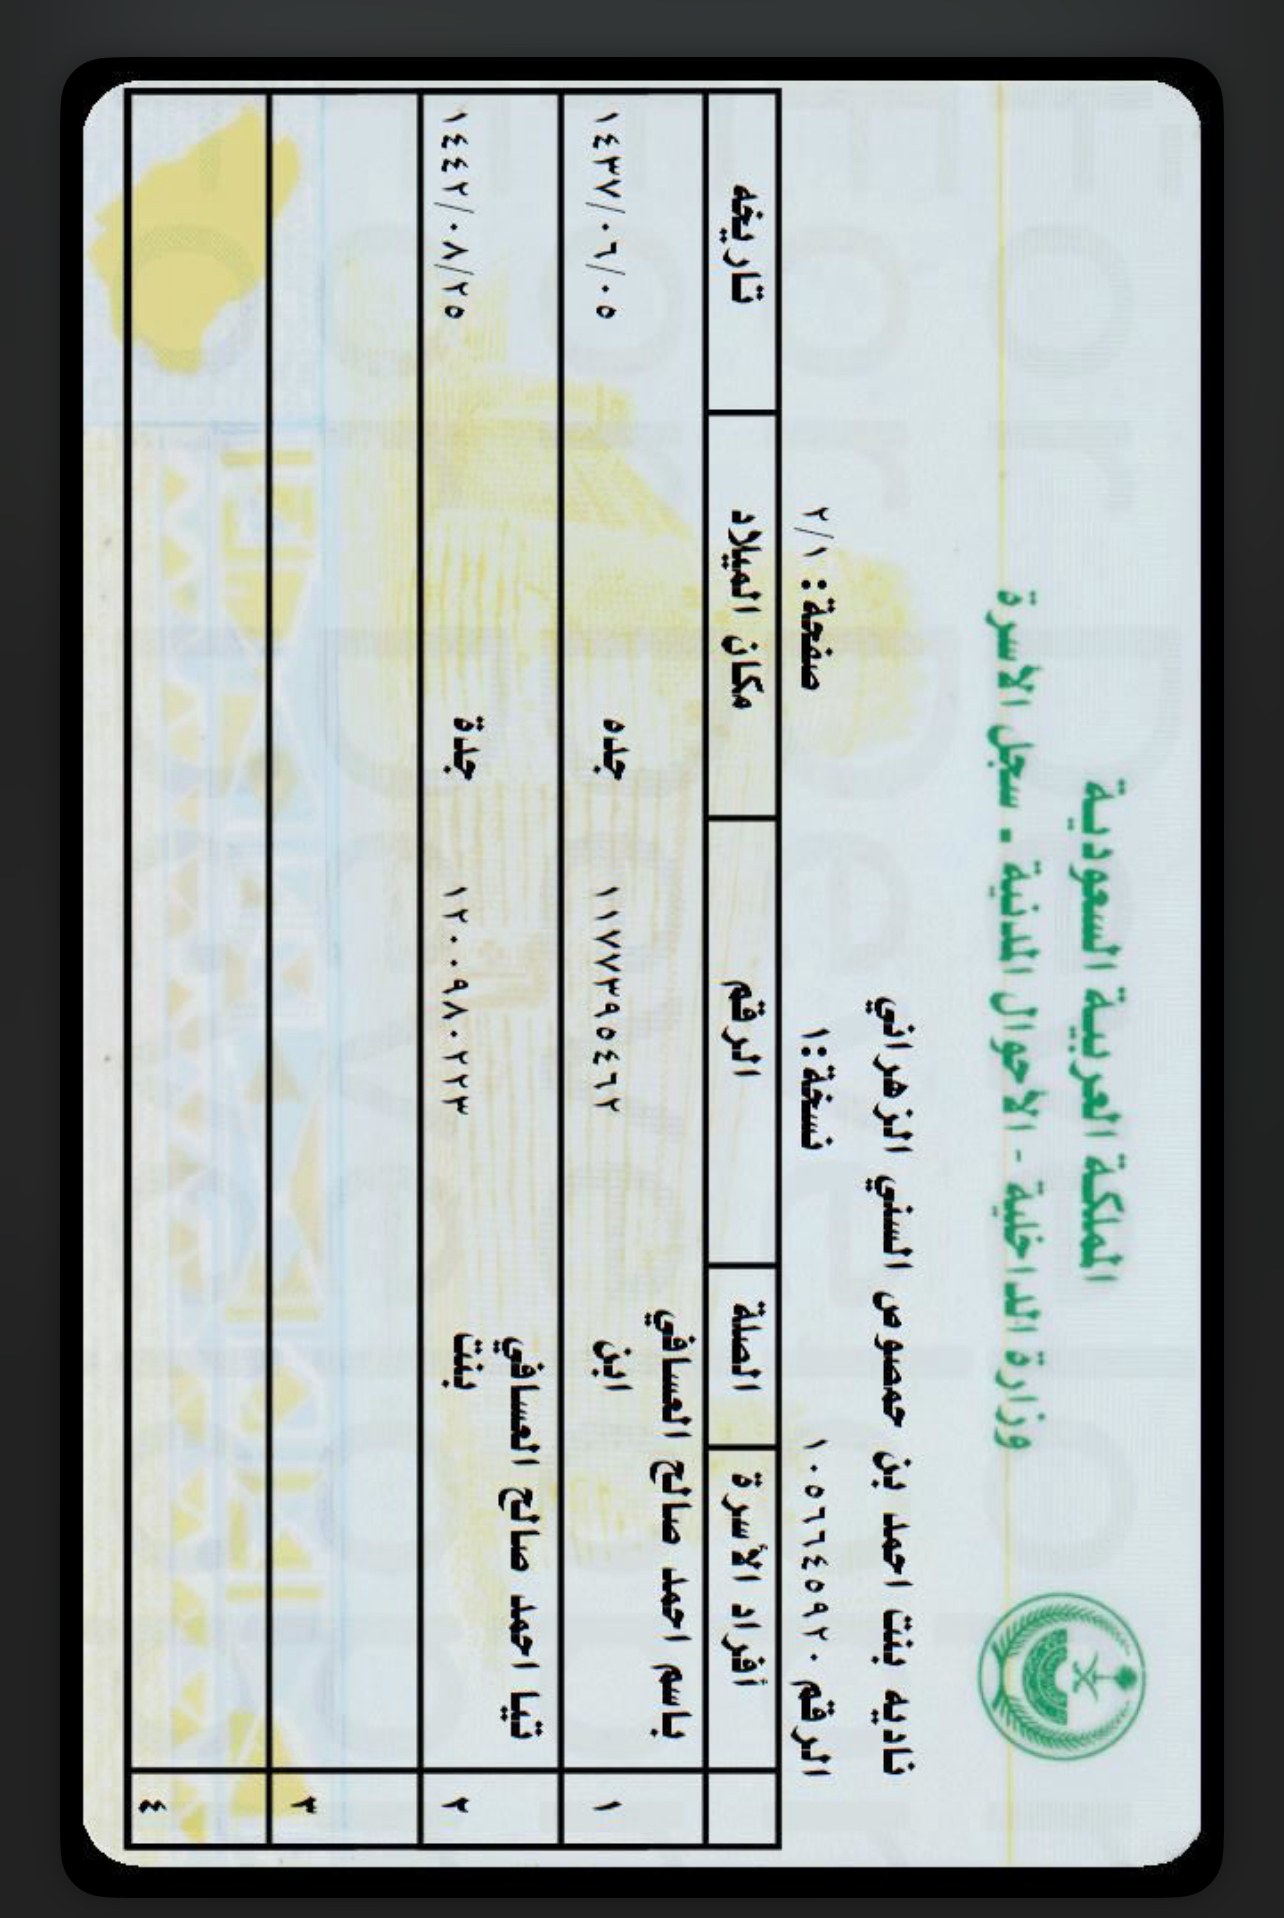 المملكة العربية السعودية
وزارة الداخلية - الأحوال المدنية - سجل الأسرة
ناديه بنت احمد بن حمصوص السني الزهراني
الرقم ١٠٥٦٦٤٥٩٢٠ نسخة: ١ صفحة: ٢/١
أفراد الأسرة الصلة الرقم مكان الميلاد تاريخه
باسم احمد صالح العسافي
١ ابن ١١٧٧٣٩٥٤٦٢ جده ١٤٣٧/٠٦/٠٥
تيا احمد صالح العسافي
٢ بنت ١٢٠٠٩٨٠٢٢٣ جدة ١٤٤٢/٠٨/٢٥
٣
٤